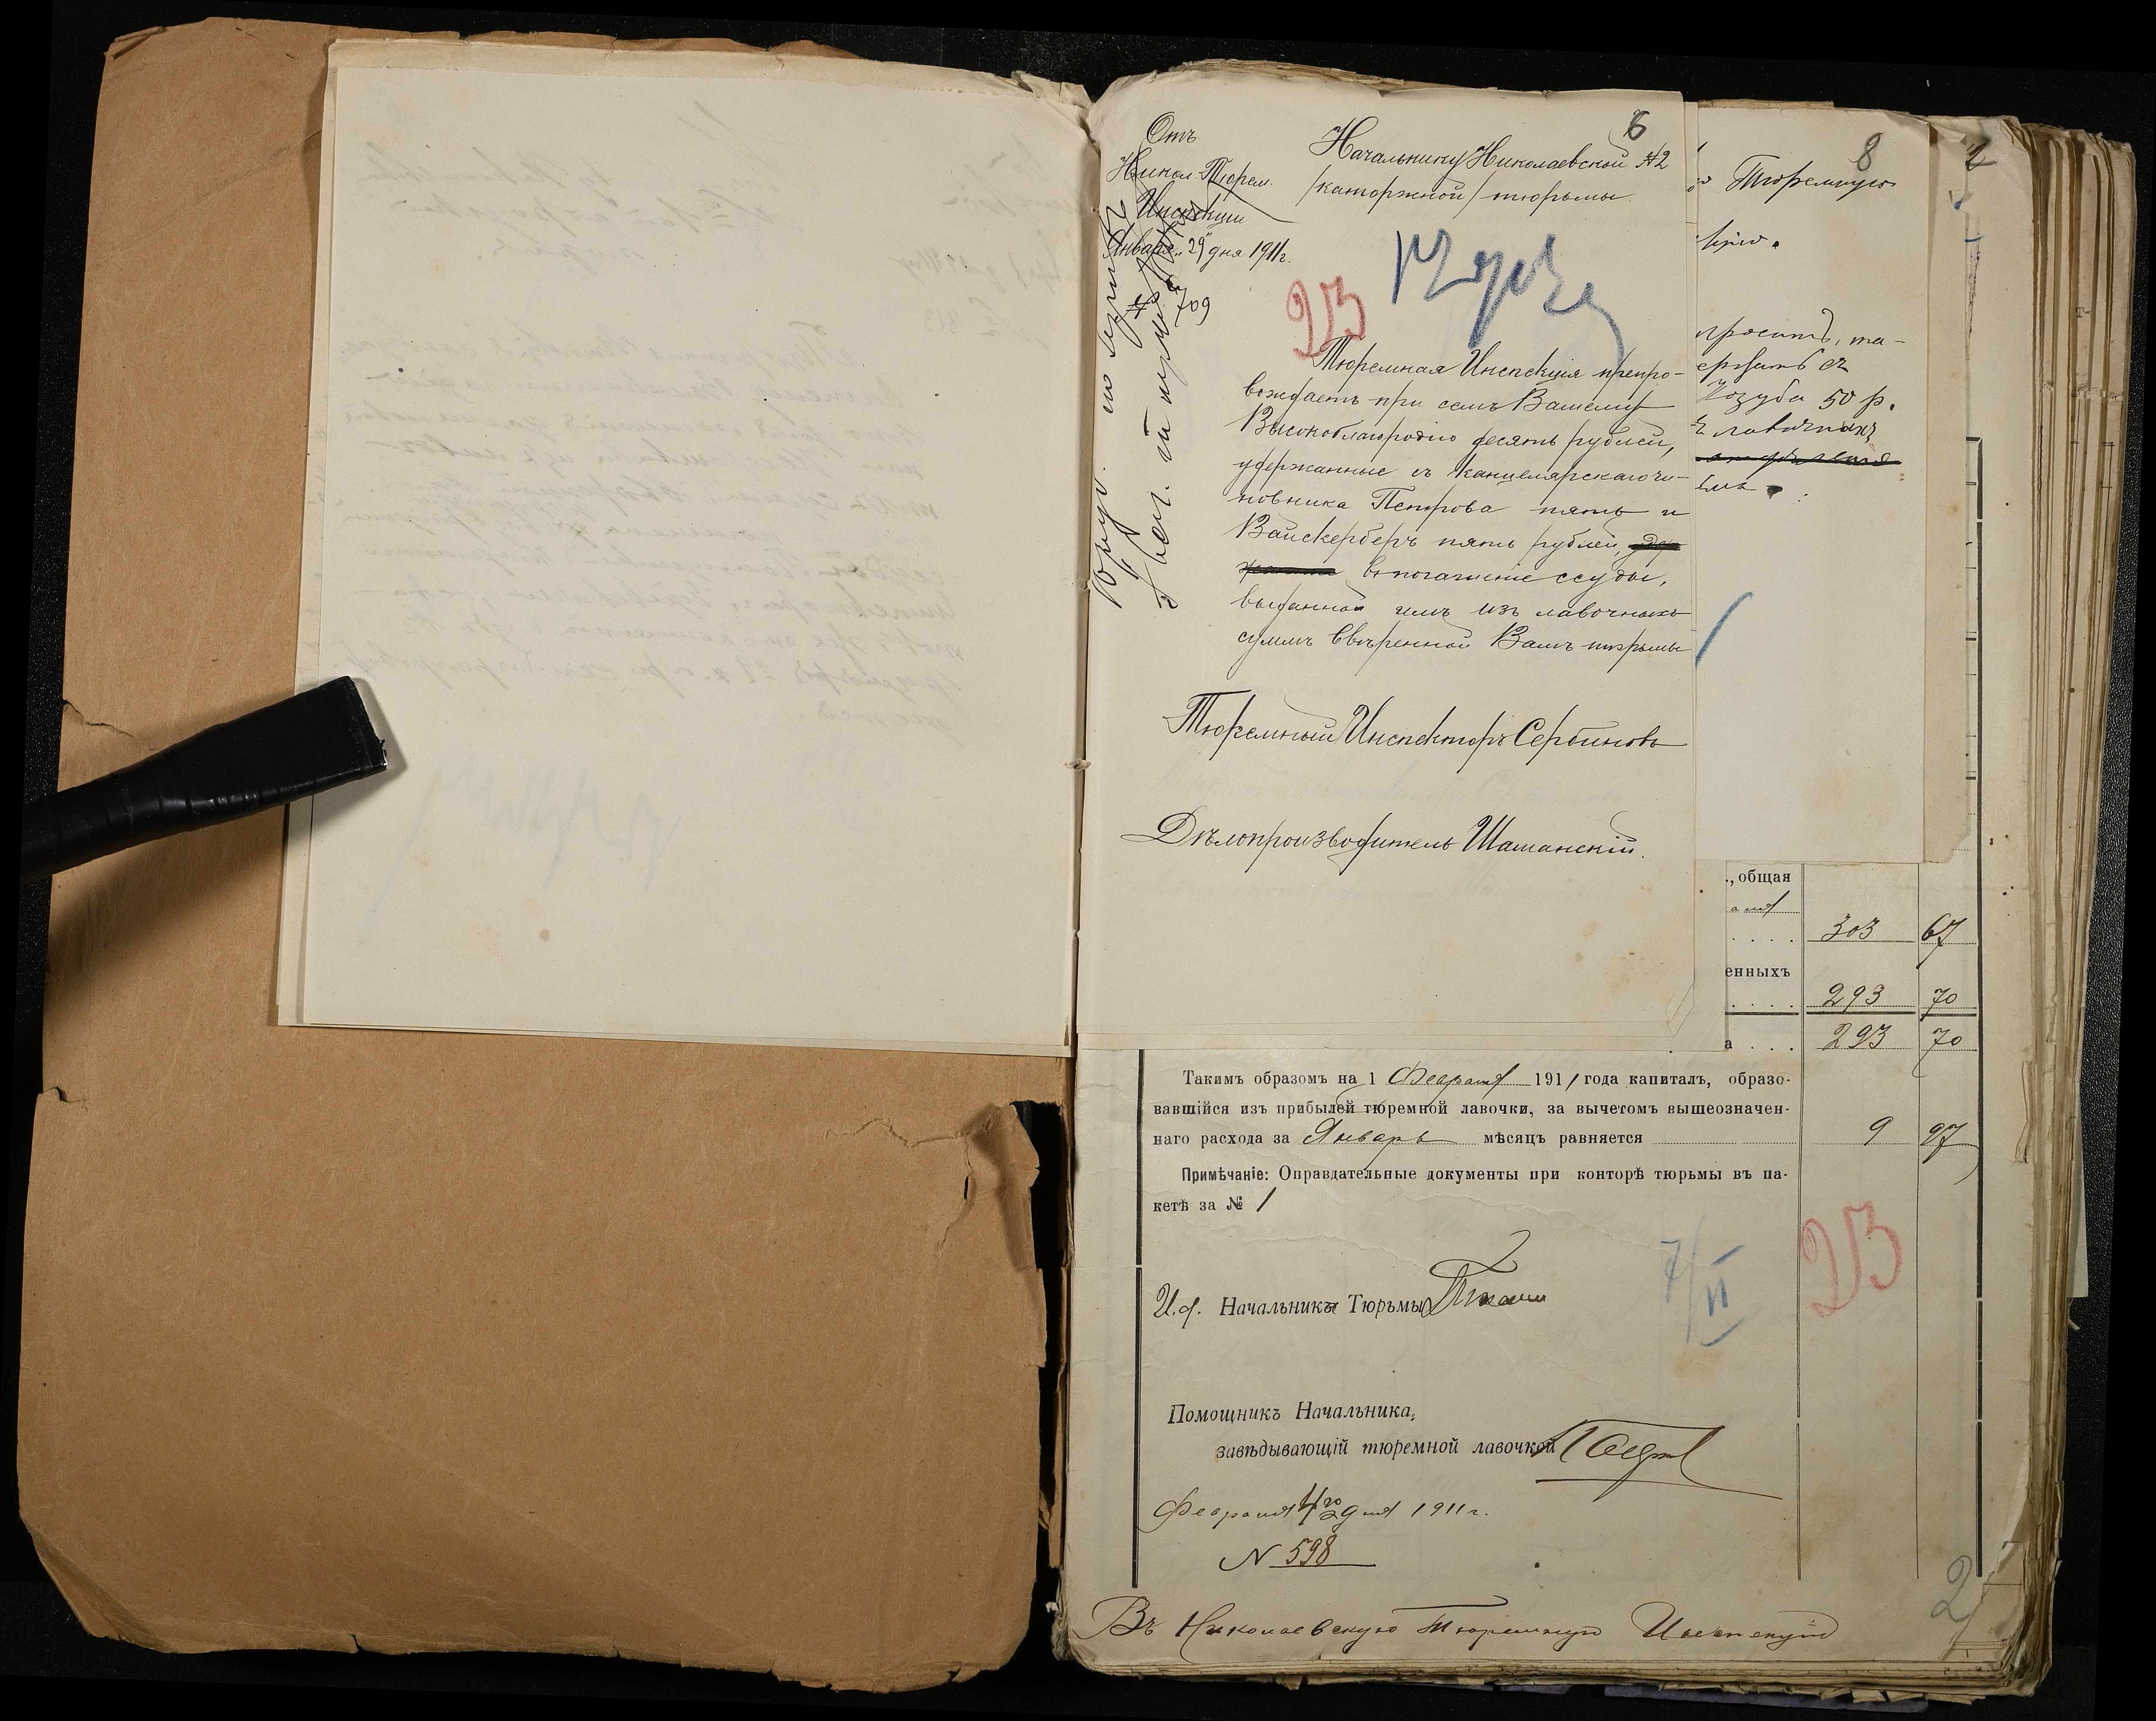 6
Отъ
Никол. Тюрем.
Инспекціи
Января „29" дня 1911г.
№ 709
Начальнику Николаевской №2
/каторжной/ тюрьмы.
23
Тюремная Инспекція препро-
вождаетъ при семъ Вашему
Высокоблагородію десять рублей,
удержанные съ канцелярскаго чи-
новника Петрова пять и
Вайскерберъ пять рублей,
въ погашеніе ссуды,
выданной имъ изъ лавочныхъ
суммъ ввѣренной Вамъ тюрьмы
Тюремный Инспекторъ Сербиновъ
Дѣлопроизводитель Шаманскій.
8
Тюремную
проситъ, та-
50 р.
лавочныхъ
2
., общая
303 67
енныхъ
293 70
а . . . 293 70
Такимъ образомъ на 1 Февраля 1911 года капиталъ, образо-
вавшійся изъ прибылей тюремной лавочки, за вычетомъ вышеозначен-
наго расхода за Январь мѣсяцъ равняется 9 97
Примѣчаніе: Оправдательные документы при конторѣ тюрьмы въ па-
кетѣ за № 1
И.д. Начальника Тюрьмы
7/II
23
Помощникъ Начальника,
завѣдывающій тюремной лавочкой
Февраля 4го дня 1911 г.
N 598
2
Въ Николаевскую Тюремную Инспекцію